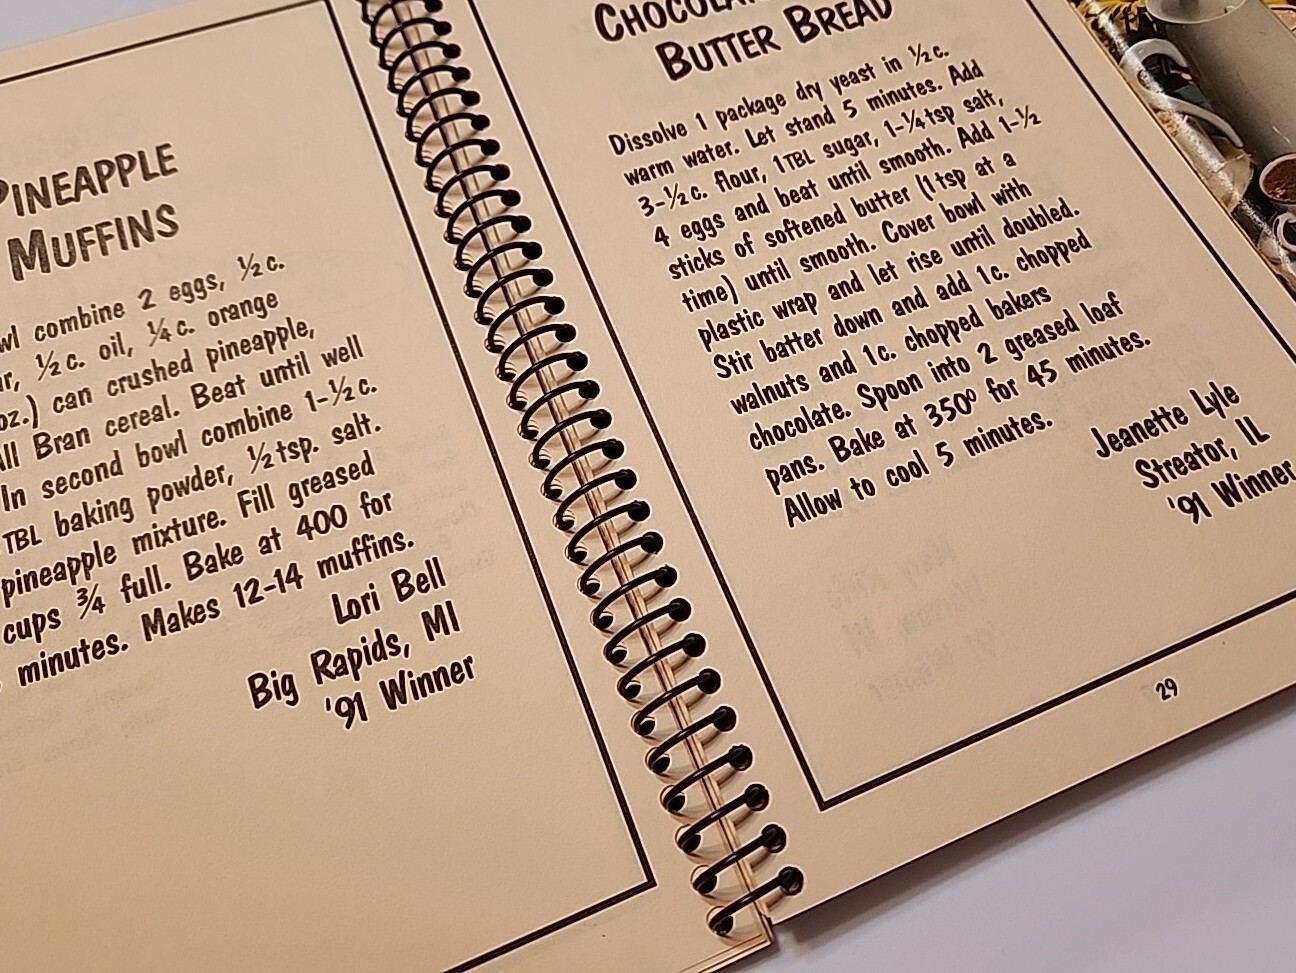 PINEAPPLE
MUFFINS
combine 2 eggs, ½ c.
½ c. oil, ¼ c. orange
oz.) can crushed pineapple,
All Bran cereal. Beat until well
In second bowl combine 1-½ c.
TBL baking powder, ½ tsp. salt.
pineapple mixture. Fill greased
cups ¾ full. Bake at 400 for
minutes. Makes 12-14 muffins.
Lori Bell
Big Rapids, MI
'91 Winner
BUTTER BREAD
Dissolve 1 package dry yeast in ½ c.
warm water. Let stand 5 minutes. Add
3-½ c. flour, 1 TBL sugar, 1-¼ tsp salt,
4 eggs and beat until smooth. Add 1-½
sticks of softened butter (1 tsp at a
time) until smooth. Cover bowl with
plastic wrap and let rise until doubled.
Stir batter down and add 1 c. chopped
walnuts and 1 c. chopped bakers
chocolate. Spoon into 2 greased loaf
pans. Bake at 350° for 45 minutes.
Allow to cool 5 minutes.
Jeanette Lyle
Streator, IL
'91 Winner
29